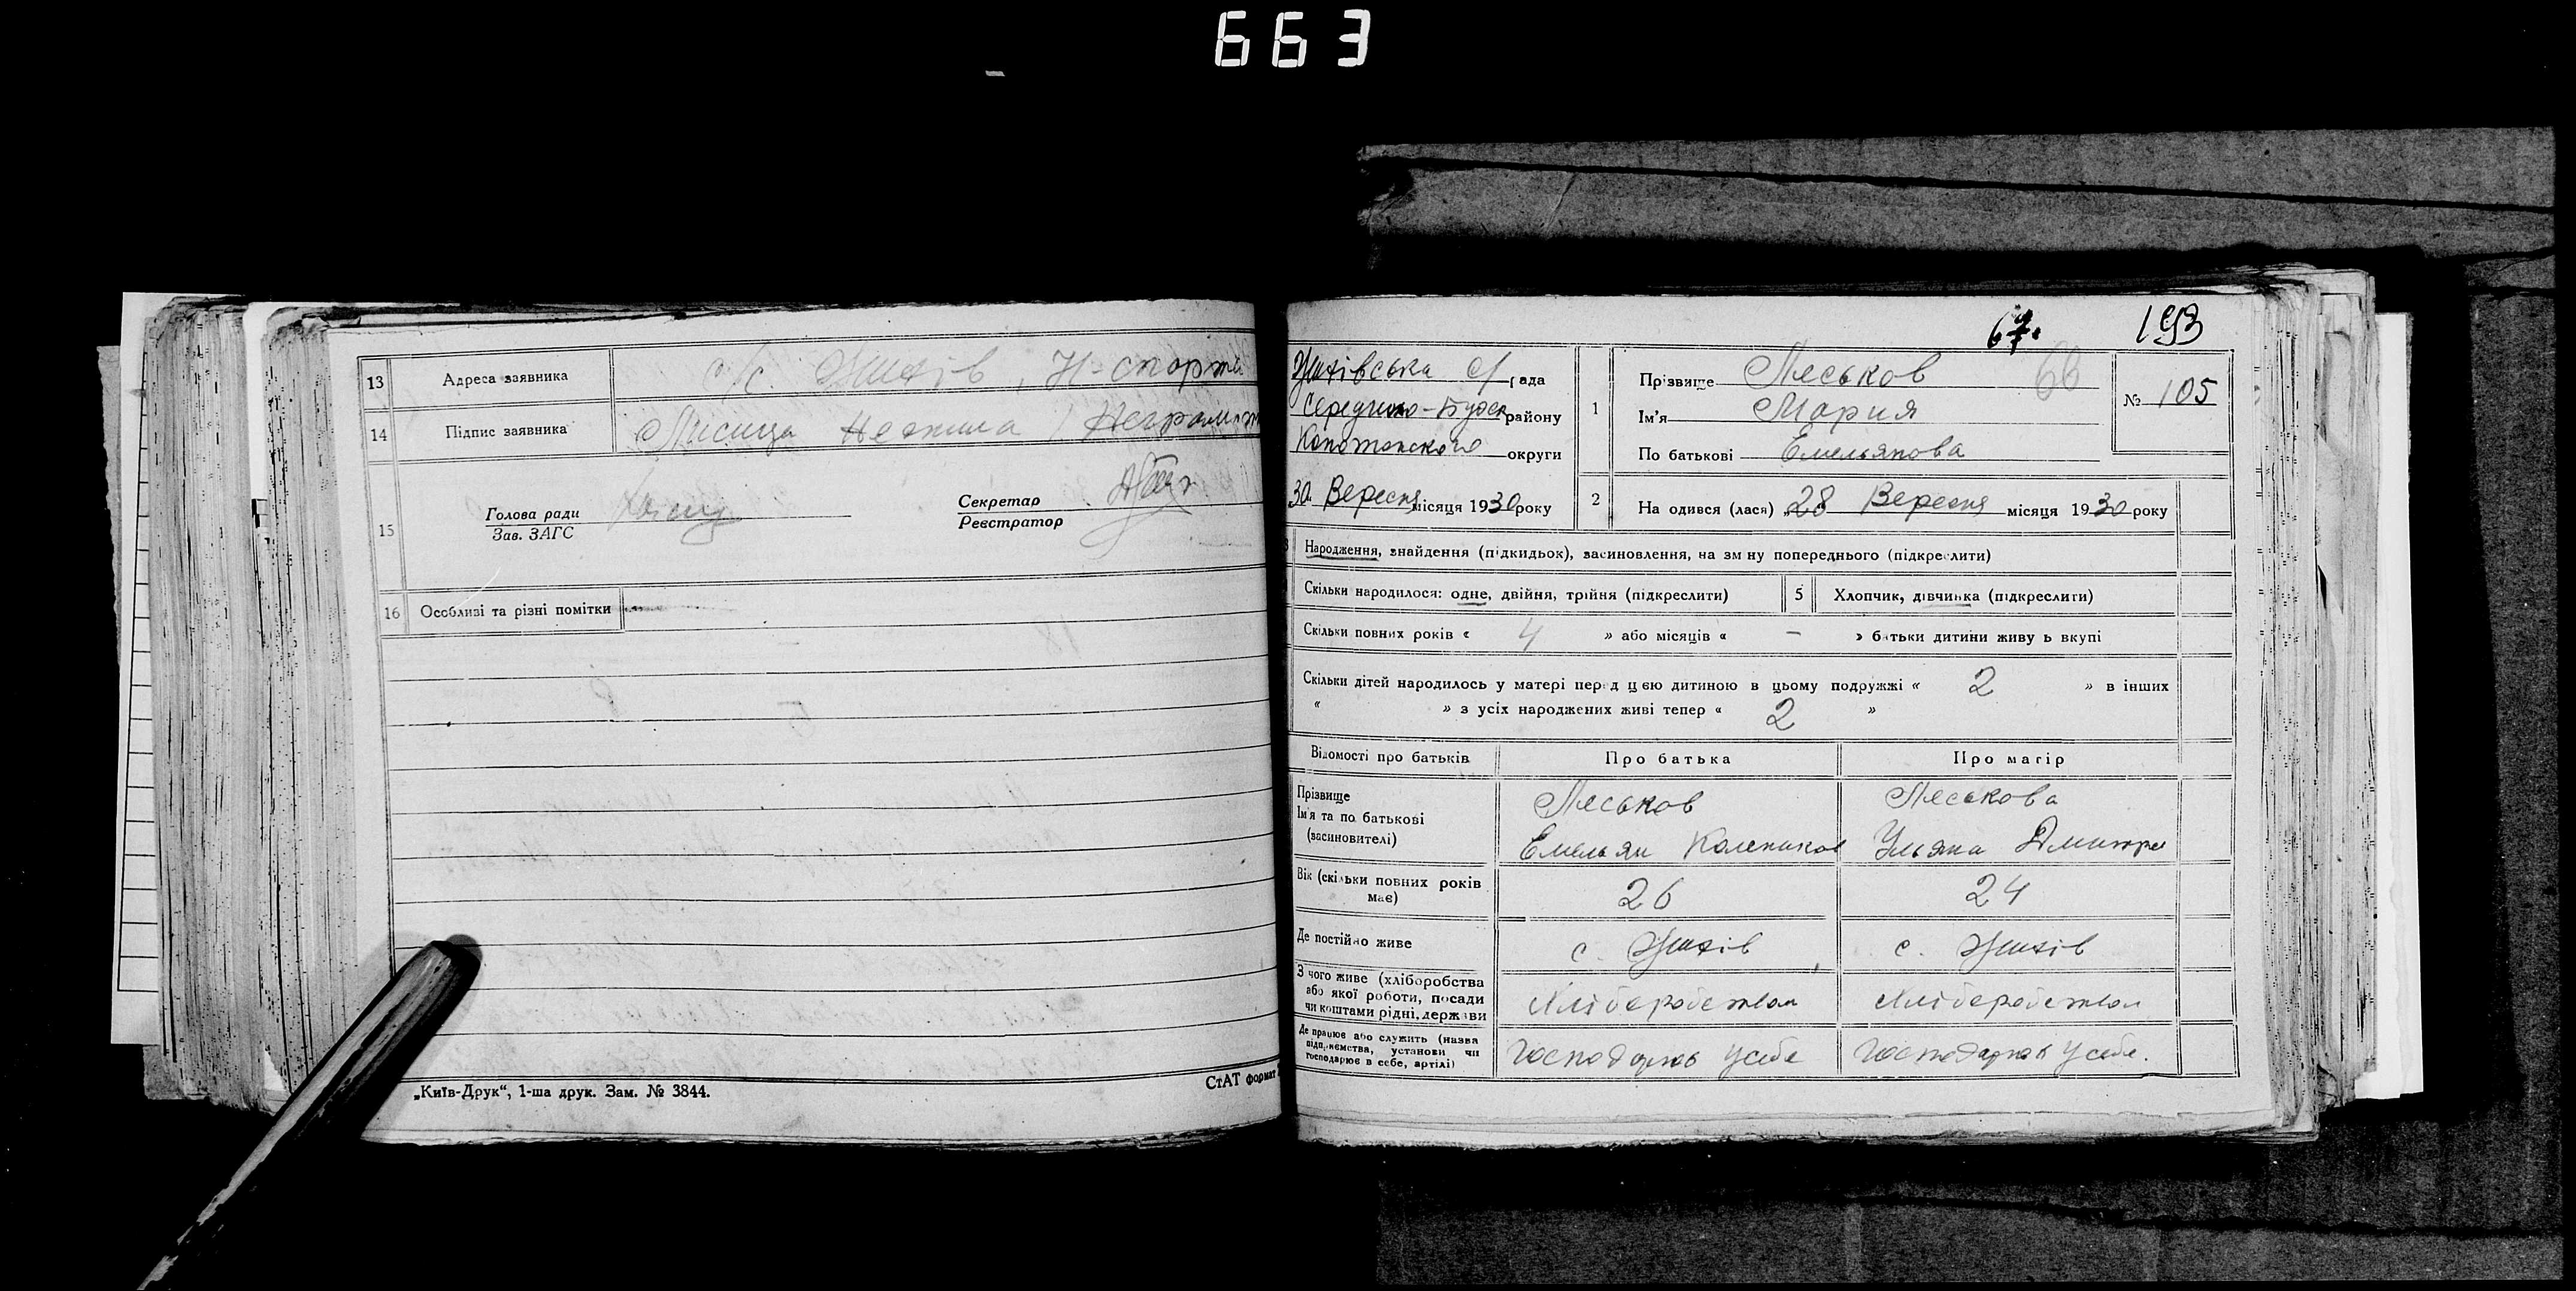 663
13 Адреса заявника с/с. Жихів, Н-
14 Підпис заявника Лисица
15 Голова ради
Зав. ЗАГС
Секретар
Реєстратор
16 Особливі та різні помітки
„Київ-Друк“, 1-ша друк. Зам. № 3844.
СтАТ формат
67. 193
Жихівська с/рада
Середино-Буд району
Конотопского округи
30 Вересня місяця 1930 року
1 Прізвище Леськов 66
Ім'я Мария
По батькові Емельянова
№ 105
2 На одився (лася) „28 Вересня місяця 1930 року
Народження, знайдення (підкидьок), засиновлення, на зм ну попереднього (підкреслити)
Скільки народилося: одне, двійня, трійня (підкреслити) 5 Хлопчик, дівчинка (підкреслити)
Скільки повних років « 4 » або місяців « – » батьки дитини живу ь вкупі
Скільки дітей народилось у матері перед цією дитиною в цьому подружжі « 2 » в інших
« » з усіх народжених живі тепер « 2 »
Відомості про батьків Про батька Про матір
Прізвище Леськов Леськова
Ім'я та по батькові
(засиновителі) Емельян Ульяна Дмитр
Вік (скільки повних років має) 26 24
Де постійно живе с. Жихів с. Жихів
З чого живе (хліборобства
або якої роботи, посади
чи коштами рідні, держави Хліборобством Хліборобством
Де працює або служить (назва
підприємства, установи чи
господарює в себе, артілі) Господарює у себе Господарює у себе.